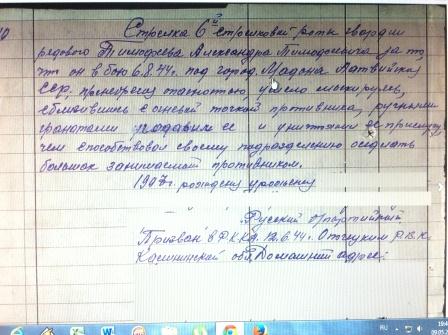 10
Стрелка 6й стрелковой роты гвардии
рядового Тимофеева Александра Тимофеевича за то,
что он в бою 6.8.44г. под город. Мадона Латвийской
ССР, презирая опасность умело маскируясь,
сблизившись с огневой точкой противника, ручными
гранатами подавил ее и уничтожил ее прислугу,
чем способствовал своему подразделению овладеть
большак занимаемой противником.
1907г. рождения урожененц
Русский б/партийный
Призван в РККА. 12.6.44г. Опочецким Р.В.К.
Калининской обл. Домашний адрес:
RU